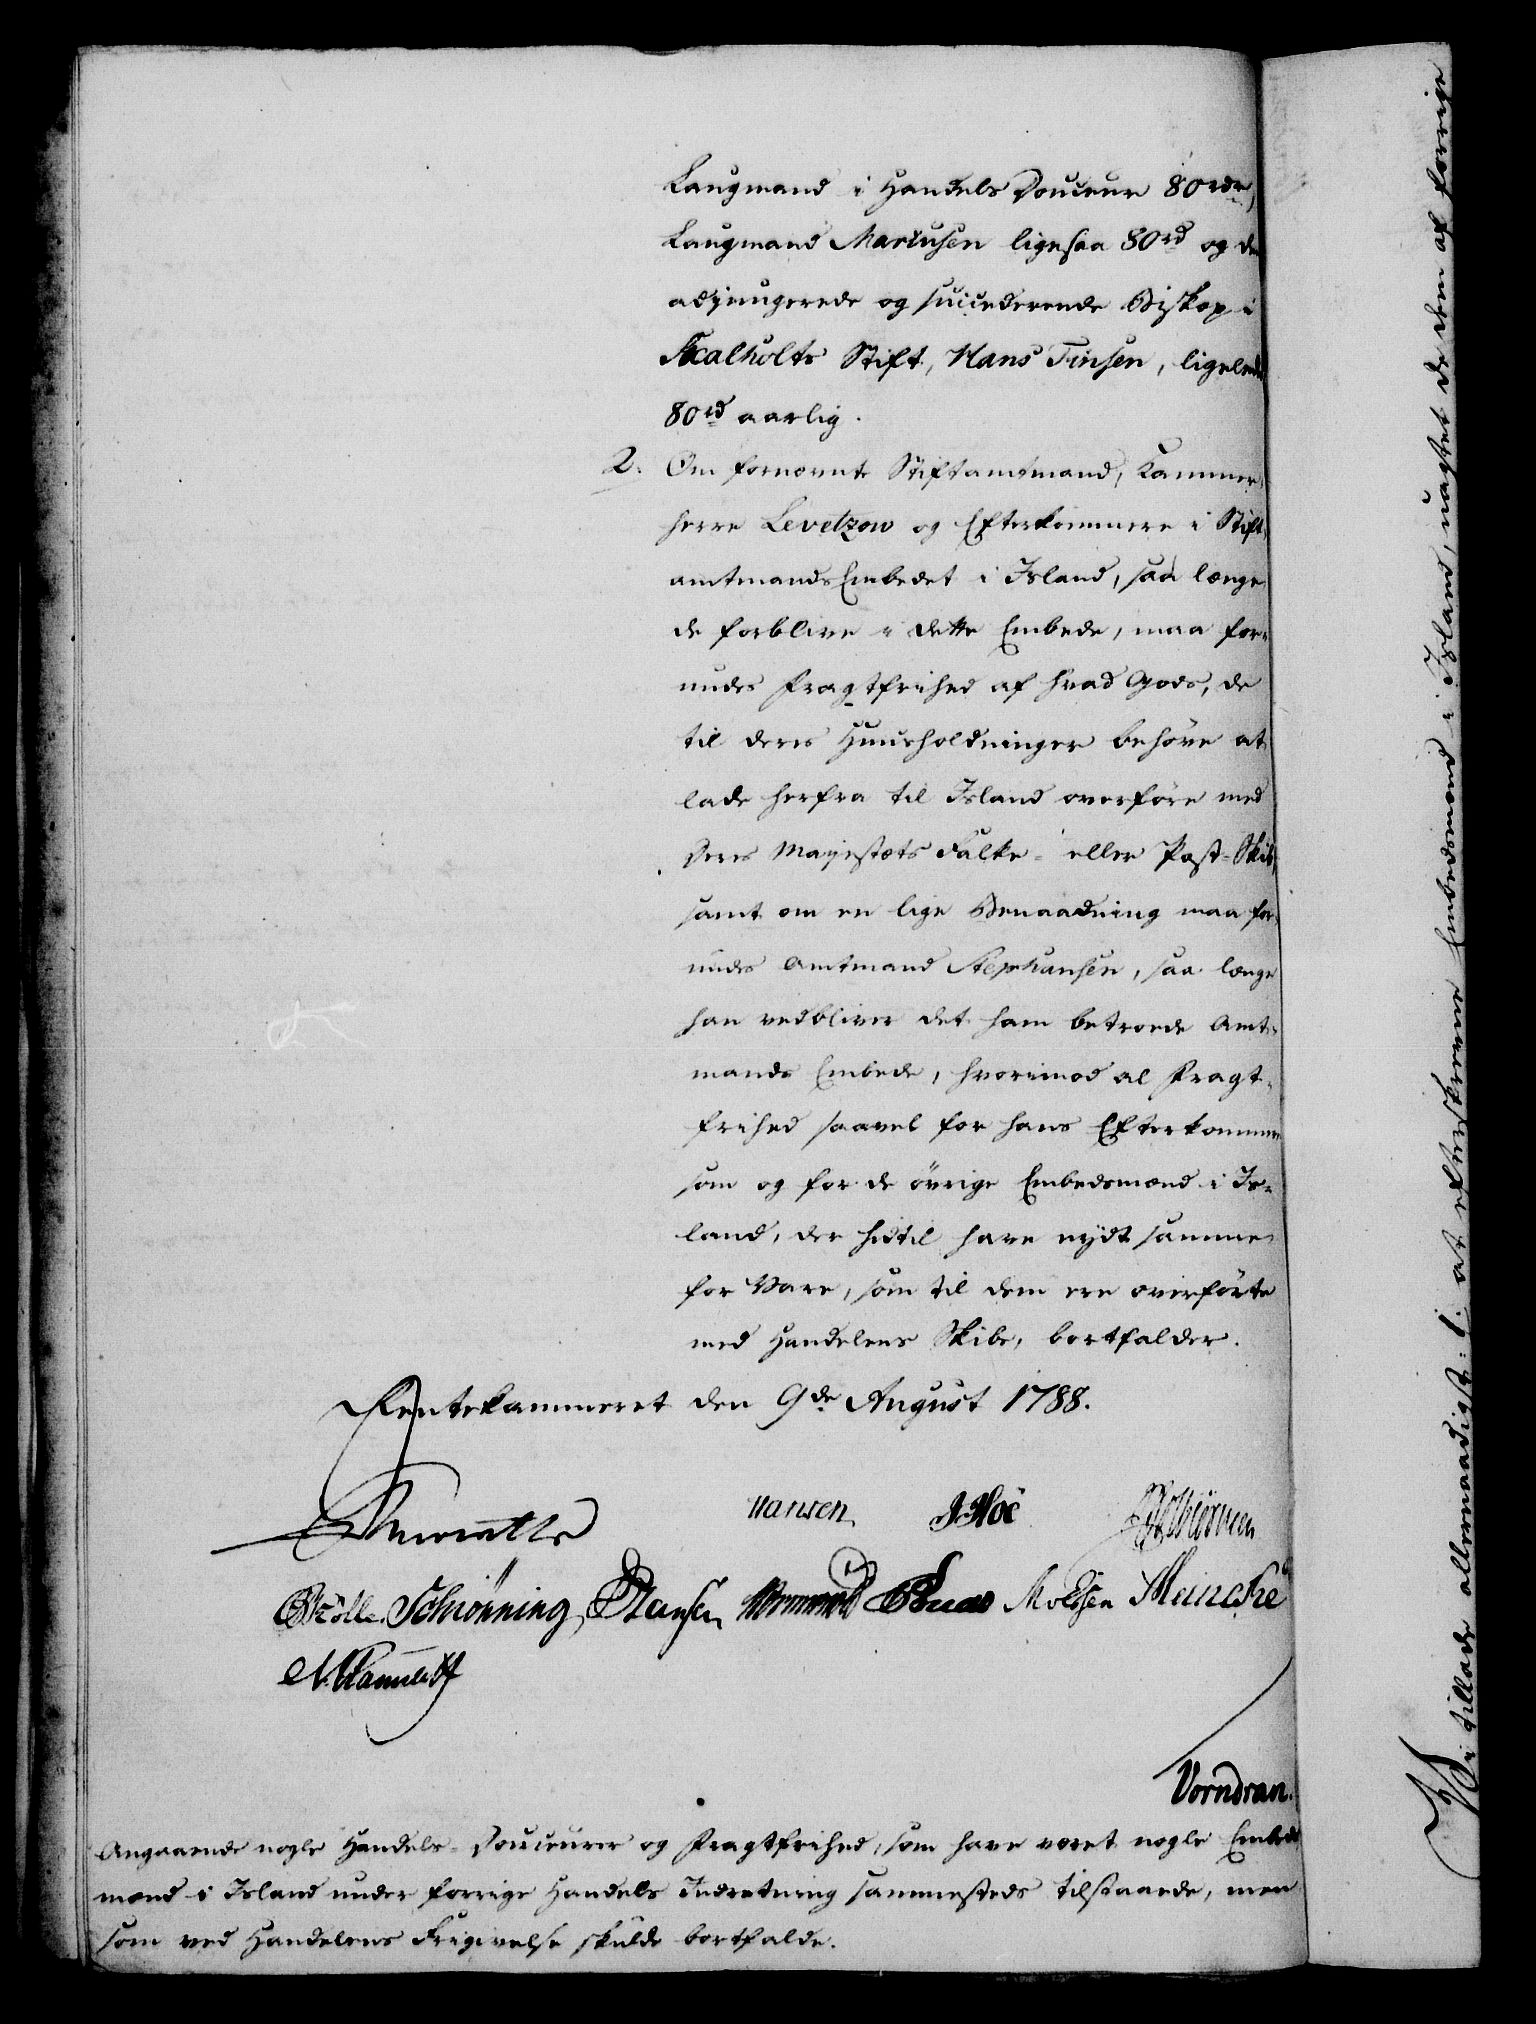 Laugmand i Handels Douceur 80 rdr,
Laugmand Marcusen ligesaa 80 rd og den
adjungerede og succederende Biskop i
Skalholts Stift, Hans Finsen, ligeledes
80 rd aarlig.
2. Om fornævnte Stiftamtmand, Kammer-
herre Levetzow og Efterkommere i Stift-
amtmandsEmbedet i Island, saa længe
de forblive i dette Embede, maa for-
undes Fragtfrihed af hvad Gods, de
til deres Huusholdninger behöve at
lade herfra til Island overföre med
Deres Majestæts Falke- eller Post-Skib,
samt om en lige Benaadning maa for-
undes Amtmand Stephansen, saa længe
han vedbliver det ham betroede Amt-
mands Embede, hvorimod al Fragt-
frihed saavel for hans Efterkommere
som og for de övrige Embedsmænd i Is-
land, der hidtil have nydt samme
for Vare, som til dem ere overförte
med Handelens Skibe, bortfalder.
Rentekammeret den 9de August 1788.
Hansen
Schiönning Hansen Moldsen Meincke
Vorndran.
Angaaende nogle Handels-Douceurer og Fragtfrihed, som have været nogle Embeds
mænd i Island under forrige Handels Indretning sammesteds tilstaaede, men
som ved Handelens Frigivelse skulde bortfalde.
Vi tillade allernaadigst: 1. at efterskrevne Embedsmænd i Island, uagtet de dem af forrige